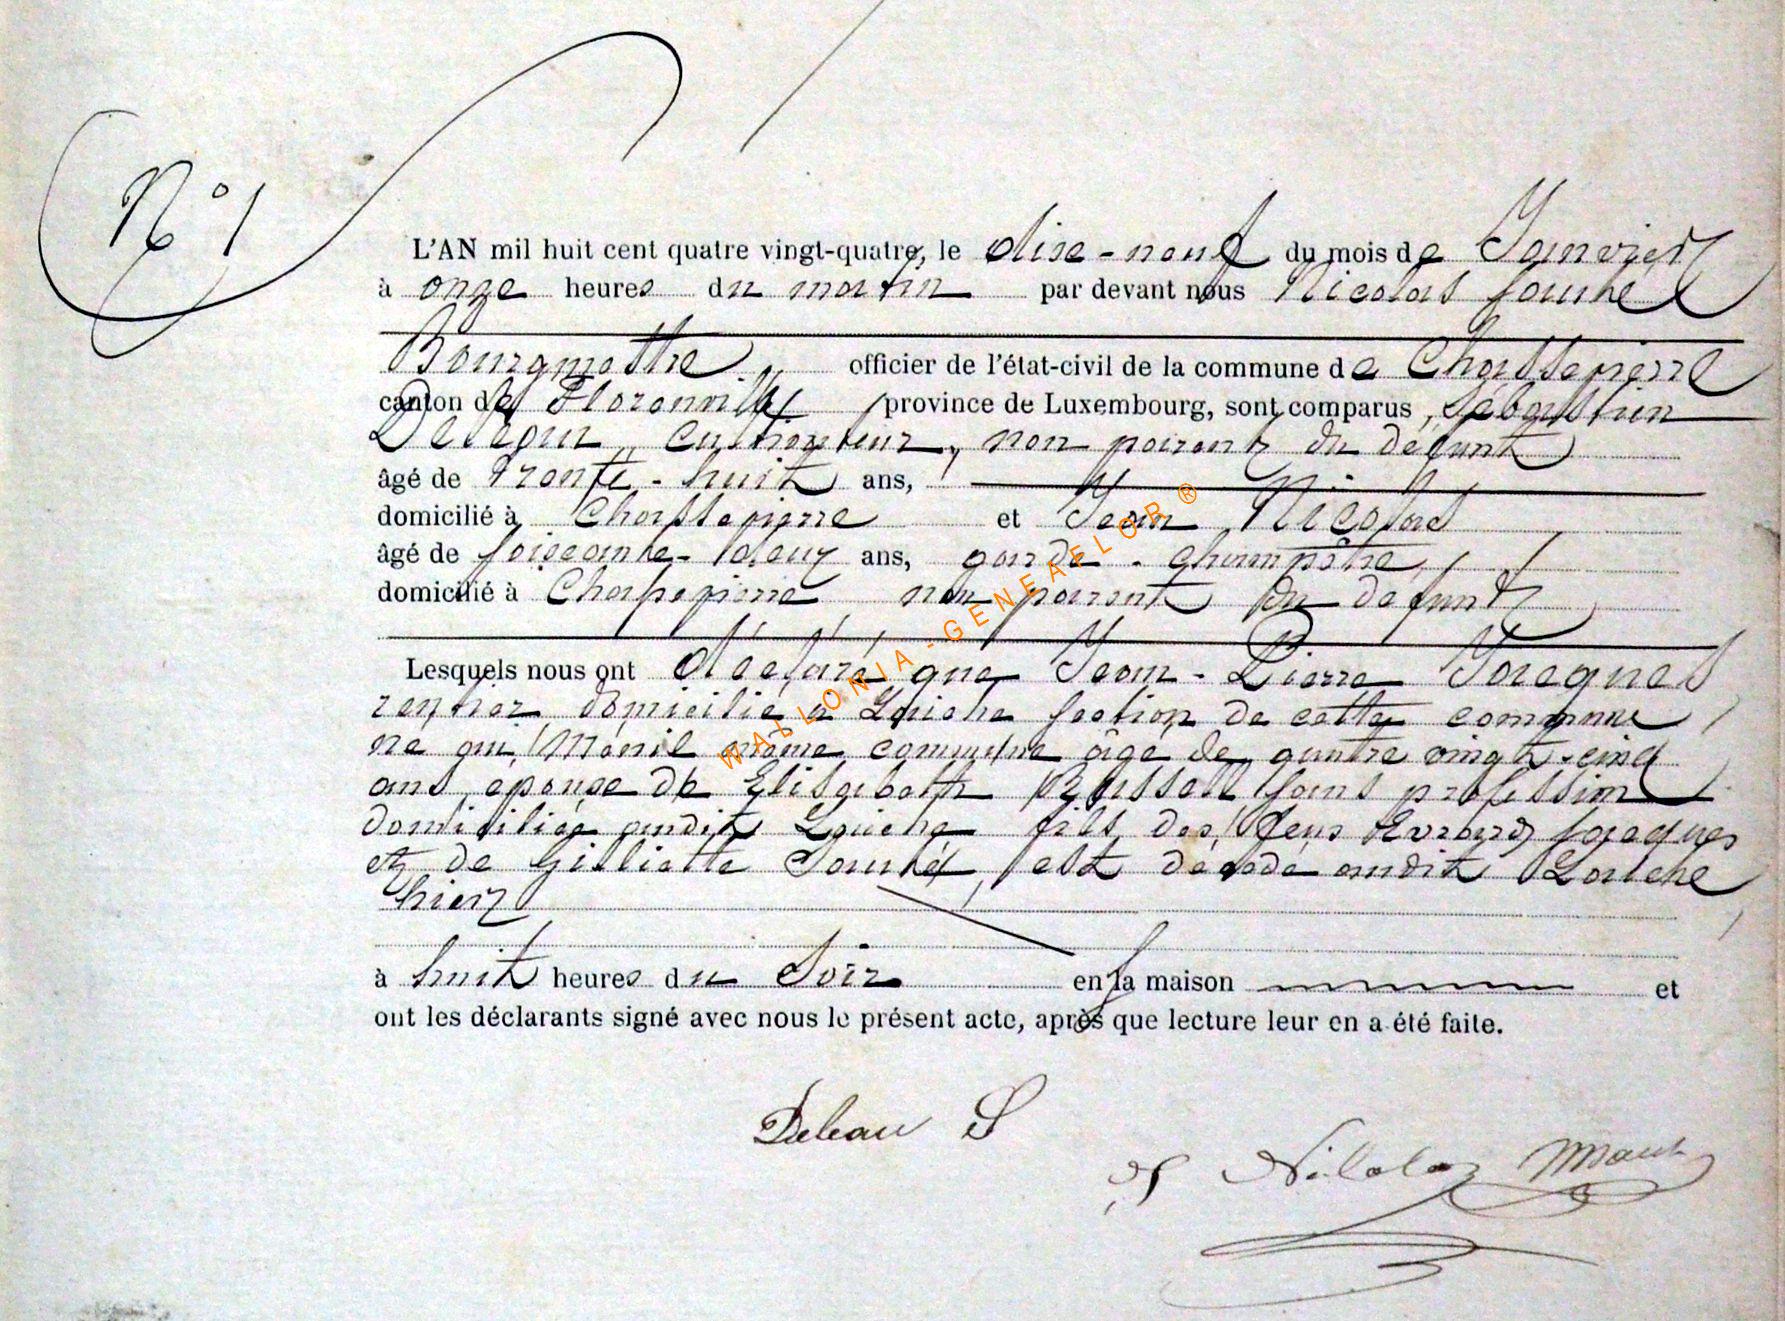 N° 1
L'AN mil huit cent quatre vingt-quatre, le dixe-neuf du mois de Janvier
à onze heures du matin par devant nous Nicolas
Bourgmestre officier de l'état-civil de la commune de Chassepierre
canton de Florenville province de Luxembourg, sont comparus, Sébastien
cultivateur, non parent du defunt
âgé de trente-huit ans,
domicilié à Chassepierre et Jean Nicolas
âgé de soixante-deux ans, garde-champêtre,
domicilié à Chassepierre non parent du defunt
Lesquels nous ont déclaré que Jean-Pierre Jacques
rentier domicilié a Laiche section de cette commune
né au Ménil même commune âgé de quatre vingt-cinq
ans epouse de Elisabeth sans profession
domiciliée audit Laiche fils des feus Evrard Jacques
et de est décédé audit Laiche
hier
à huit heures du soir en la maison et
ont les déclarants signé avec nous le présent acte, après que lecture leur en a été faite.
Deleau S
WALLONIA-GENEAFLOR ®